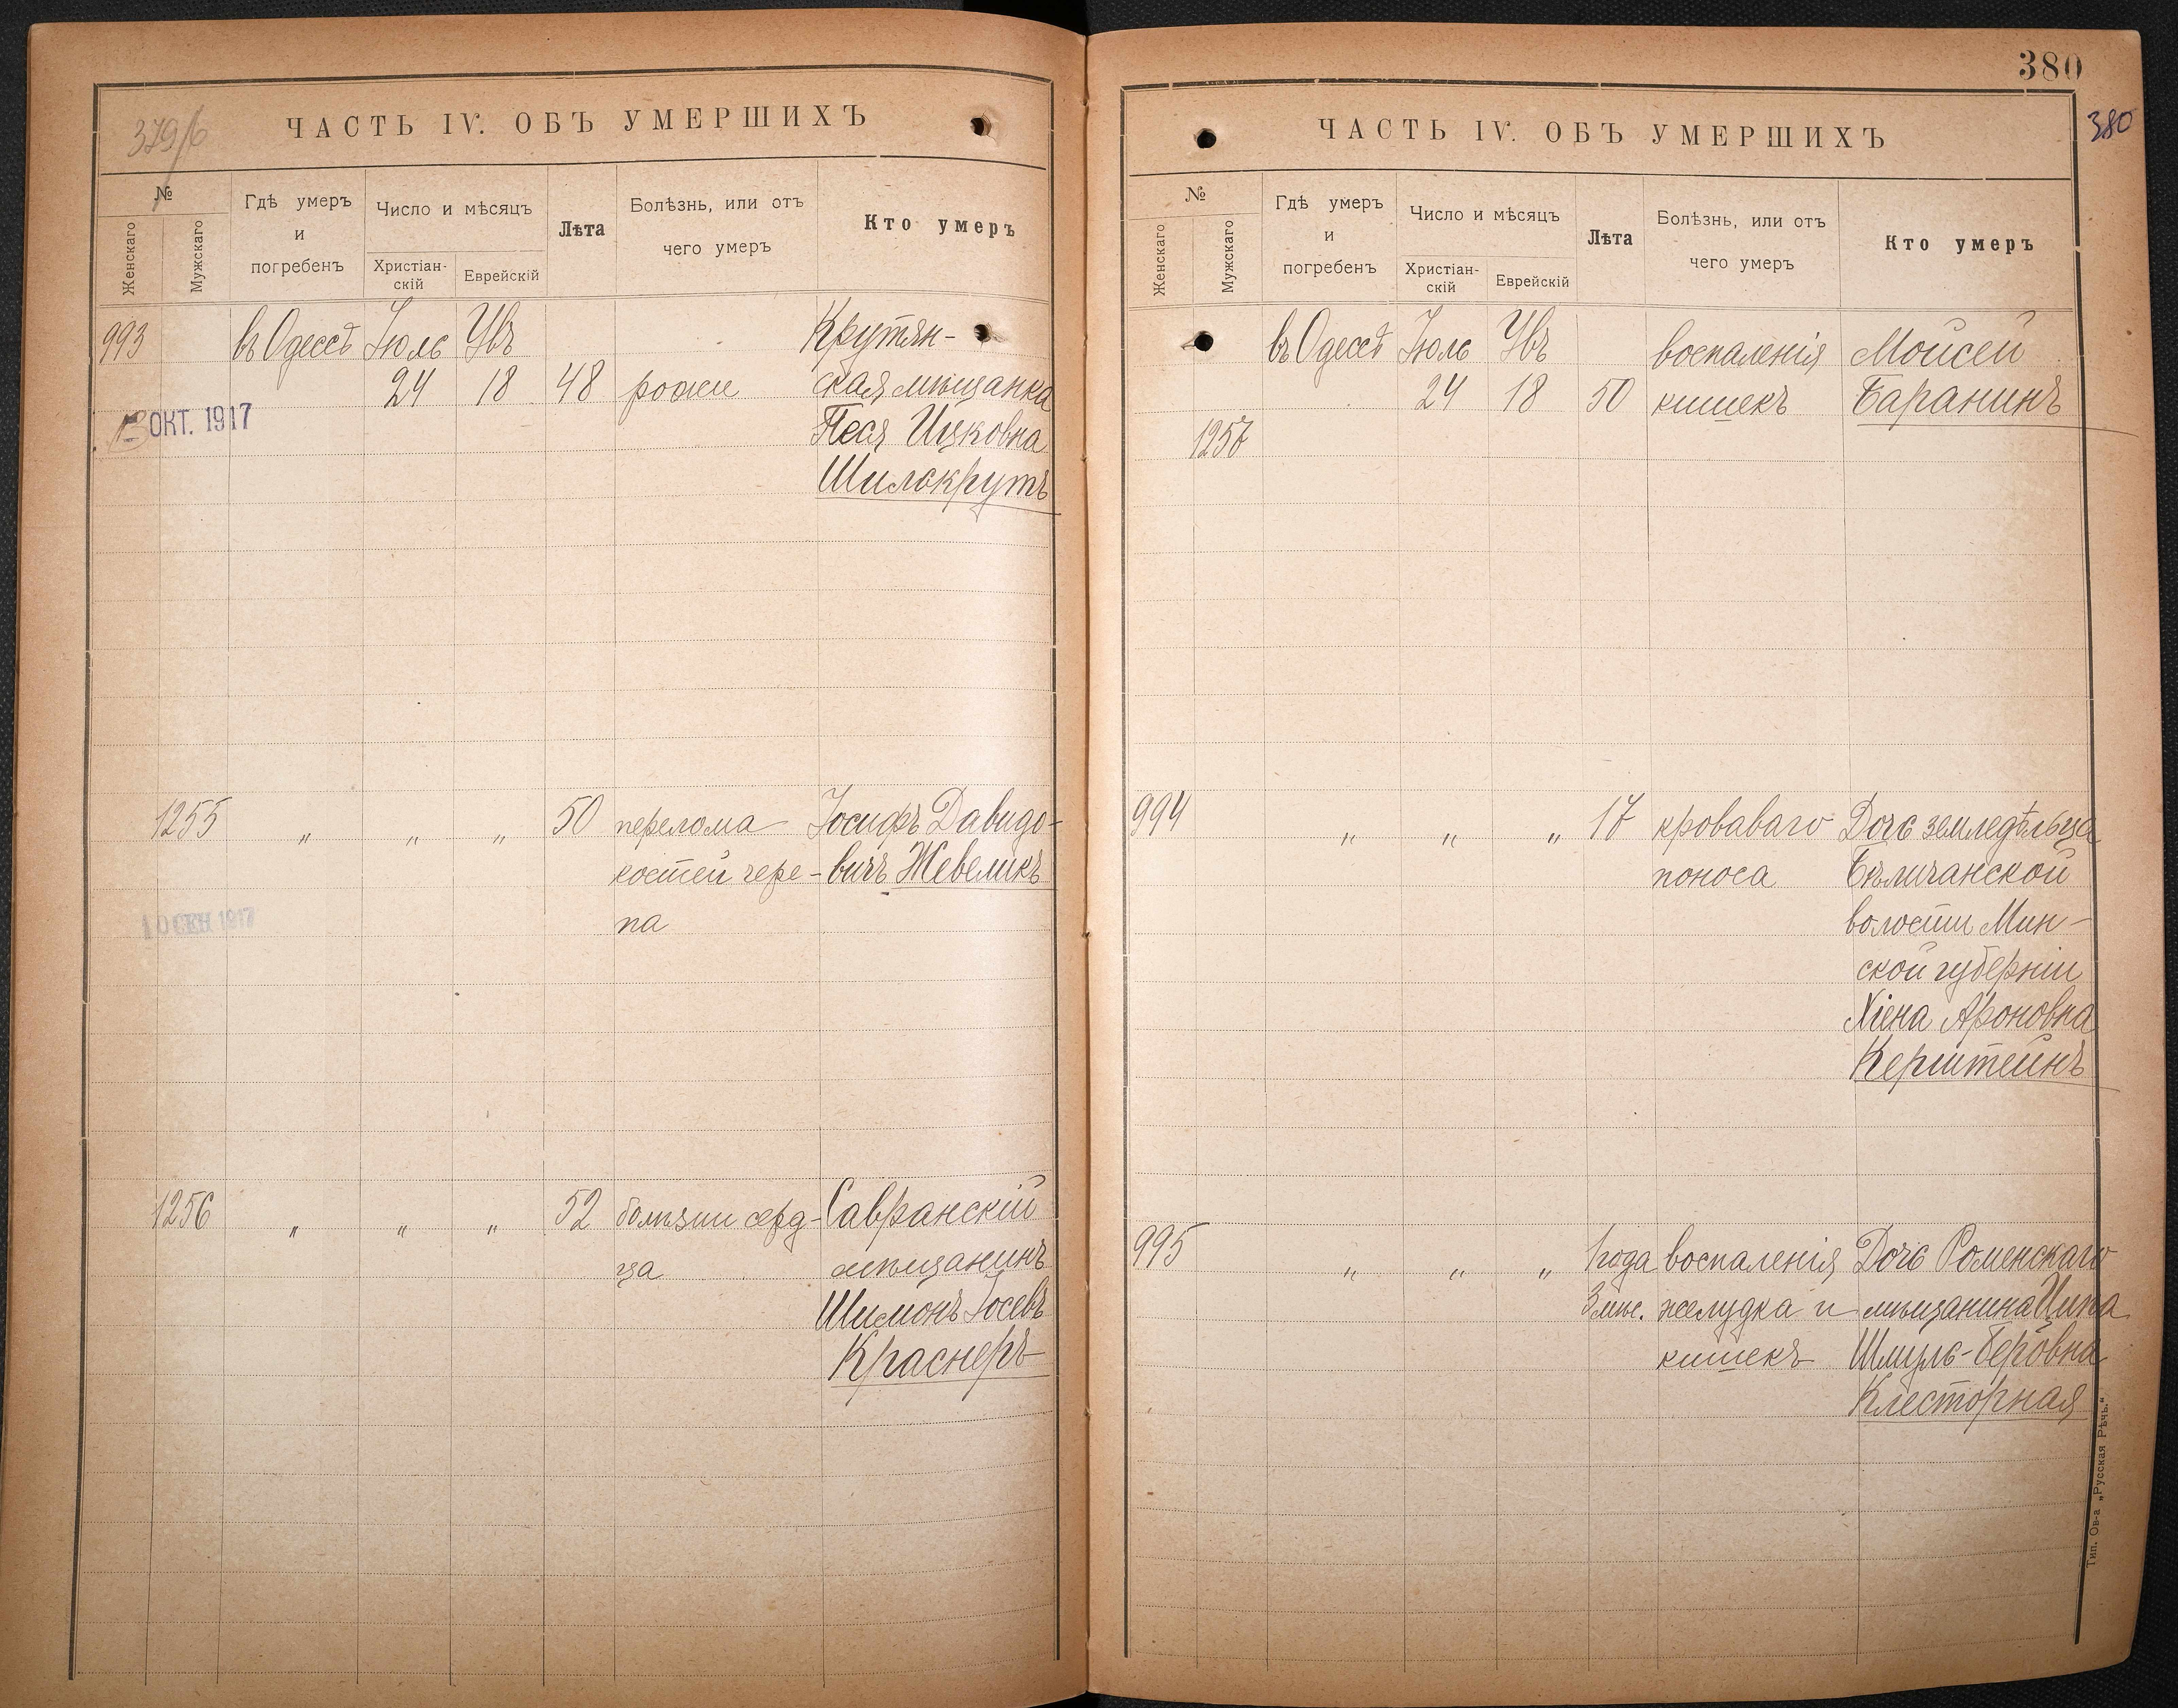 379/б
ЧАСТЬ IV. ОБЪ УМЕРШИХЪ
№
Женскаго
Мужскаго
Гдѣ умеръ
и
погребенъ
Число и мѣсяцъ
Христіан-
скій
Еврейскій
Лѣта
Болѣзнь, или отъ
чего умеръ
Кто умеръ
993 въ Одессѣ Іюль Увъ Крутян-
24 18 48 рожи ская мѣщанка
ОКТ. 1917
Песя Ицковна
Шилокрутъ
1255 „ „ „ 50 перелома Іосифъ Давидо-
костей чере- вичъ Жевеликъ
па
10 СЕН 1917
1256 „ „ „ 52 болѣзни серд- Савранскій
ца мѣщанинъ
Шимонъ Іосевъ
Краснеръ
380
380
ЧАСТЬ IV. ОБЪ УМЕРШИХЪ
№
Женскаго
Мужскаго
Гдѣ умеръ
и
погребенъ
Число и мѣсяцъ
Христіан-
скій
Еврейскій
Лѣта
Болѣзнь, или отъ
чего умеръ
Кто умеръ
въ Одессѣ Іюль Увъ воспаленія Мойсей
24 18 50 кишекъ Баранинъ
1257
994 „ „ „ 17 кроваваго Дочь земледѣльца
поноса Бѣличанской
волости Мин-
ской губерніи
Хіена Ароновна
Керштейнъ
995 „ „ „ 1 года воспаленія Дочь Роменскаго
3 мѣс. желудка и мѣщанина Ципа
кишекъ Шмуль-Беровна
Клесторная
Тип. Ов-а „Русская Рѣчь."